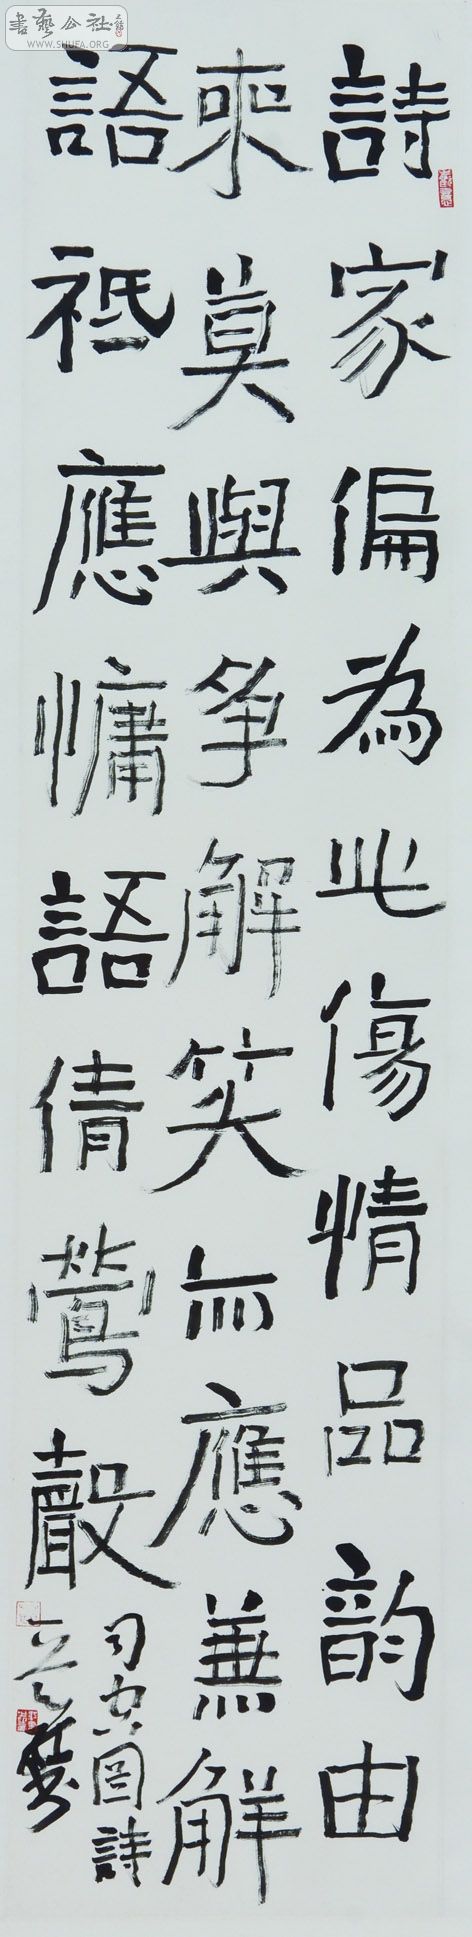 書藝公社
WWW.SHUFA.ORG
詩家偏為此傷情品韵由
來莫與爭解笑亦應兼解
語祗應慵語倩鶯聲
司空圖詩